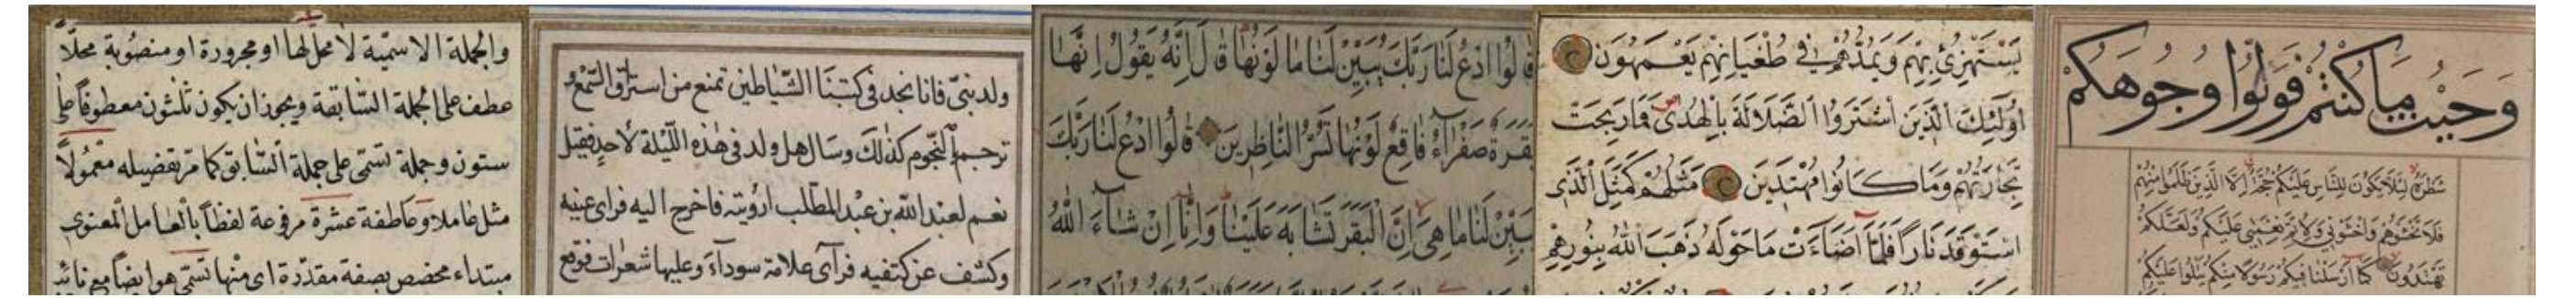 والجملة الاسمية لا محل لها او مجرورة او منصوبة محلاً
عطف على الجملة السابقة ويجوز ان يكون ثلثون معطوفاً على
ستون وجملة تسمى على جملة السابق كما مر تفضيله معمولاً
مثل عاملا وعاطفة عشرة مرفوعة لفظاً بالعامل المعنوي
مبتداء مخصص بصفة مقدرة اى منها تسمى هو ايضاً مع
ولد نبي فانا نجد في كتبنا الشياطين تمنع من استراق السمع و
ترجم بالنجوم كذلك وسال هل ولد في هذه الليلة لاحد فقيل
نعم لعبد الله بن عبد المطلب فاخرج اليه فراى عينيه
وكشف عن كتفيه فرآى علامة سوداء وعليها شعرات فوقع
قَالُوا ادْعُ لَنَا رَبَّكَ يُبَيِّنْ لَنَا مَا لَوْنُهَا قَالَ اِنَّهُ يَقُولُ اِنَّهَا
بَقَرَةٌ صَفْرَآءُ فَاقِعٌ لَوْنُهَا تَسُرُّ النَّاظِرِينَ قَالُوا ادْعُ لَنَا رَبَّكَ
يُبَيِّنْ لَنَا مَا هِيَ اِنَّ الْبَقَرَ تَشَابَهَ عَلَيْنَا وَاِنَّا اِنْ شَآءَ اللّٰهُ
يَسْتَهْزِئُ بِهِمْ وَيَمُدُّهُمْ فِي طُغْيَانِهِمْ يَعْمَهُونَ
اُولَئِكَ الَّذِينَ اشْتَرَوُا الضَّلَالَةَ بِالْهُدَى فَمَا رَبِحَتْ
تِجَارَتُهُمْ وَمَا كَانُوا مُهْتَدِينَ مَثَلُهُمْ كَمَثَلِ الَّذِي
اسْتَوْقَدَ نَارًا فَلَمَّا اَضَاءَتْ مَا حَوْلَهُ ذَهَبَ اللّٰهُ بِنُورِهِمْ
وَحَيْثُ مَا كُنْتُمْ فَوَلُّوا وُجُوهَكُمْ
شَطْرَهُ لِئَلَّا يَكُونَ لِلنَّاسِ عَلَيْكُمْ حُجَّةٌ اِلَّا الَّذِينَ ظَلَمُوا مِنْهُمْ
فَلَا تَخْشَوْهُمْ وَاخْشَوْنِي وَلِاُتِمَّ نِعْمَتِي عَلَيْكُمْ وَلَعَلَّكُمْ
تَهْتَدُونَ كَمَا اَرْسَلْنَا فِيكُمْ رَسُولًا مِنْكُمْ يَتْلُوا عَلَيْكُمْ